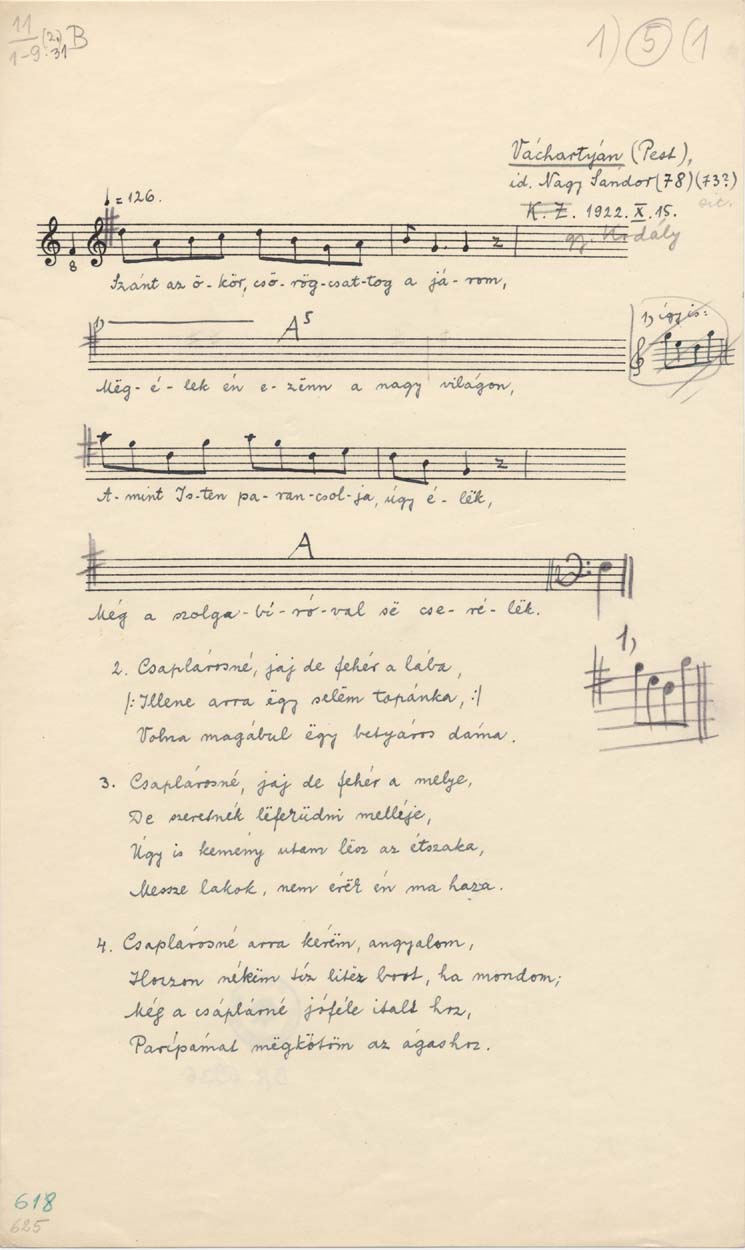 11 (2.) B
1-9:31
1) 5 (1
Váchartyán (Pest),
id. Nagy Sándor (78) (73?)
sic.
K. Z. 1922. X. 15.
gy. Kodály
= 126.
8
Szánt az ö-kör, csö-rög-csat-tog a já-rom,
1) A5
1, így is:
Mëg-é-lek én e-zënn a nagy világon,
A-mint Is-ten pa-ran-csol-ja, úgy é-lëk,
A
Még a szolga-bí-ró-val së cse-ré-lëk.
1,
2. Csaplárosné, jaj de fehér a lába,
/: Illene arra ëgy selëm topánka, :/
Volna magábul ëgy betyáros dáma.
3. Csaplárosné, jaj de fehér a melye,
De szeretnék lëfekünni melléje,
Úgy is kemény utam lësz az étszaka,
Messze lakok, nem érëk én ma haza.
4. Csaplárosné arra kérëm, angyalom,
Hozzon nékëm tíz litër bort, ha mondom;
Még a csáplárné jóféle italt hoz,
Paripámat mëgkötöm az ágashoz.
618
625